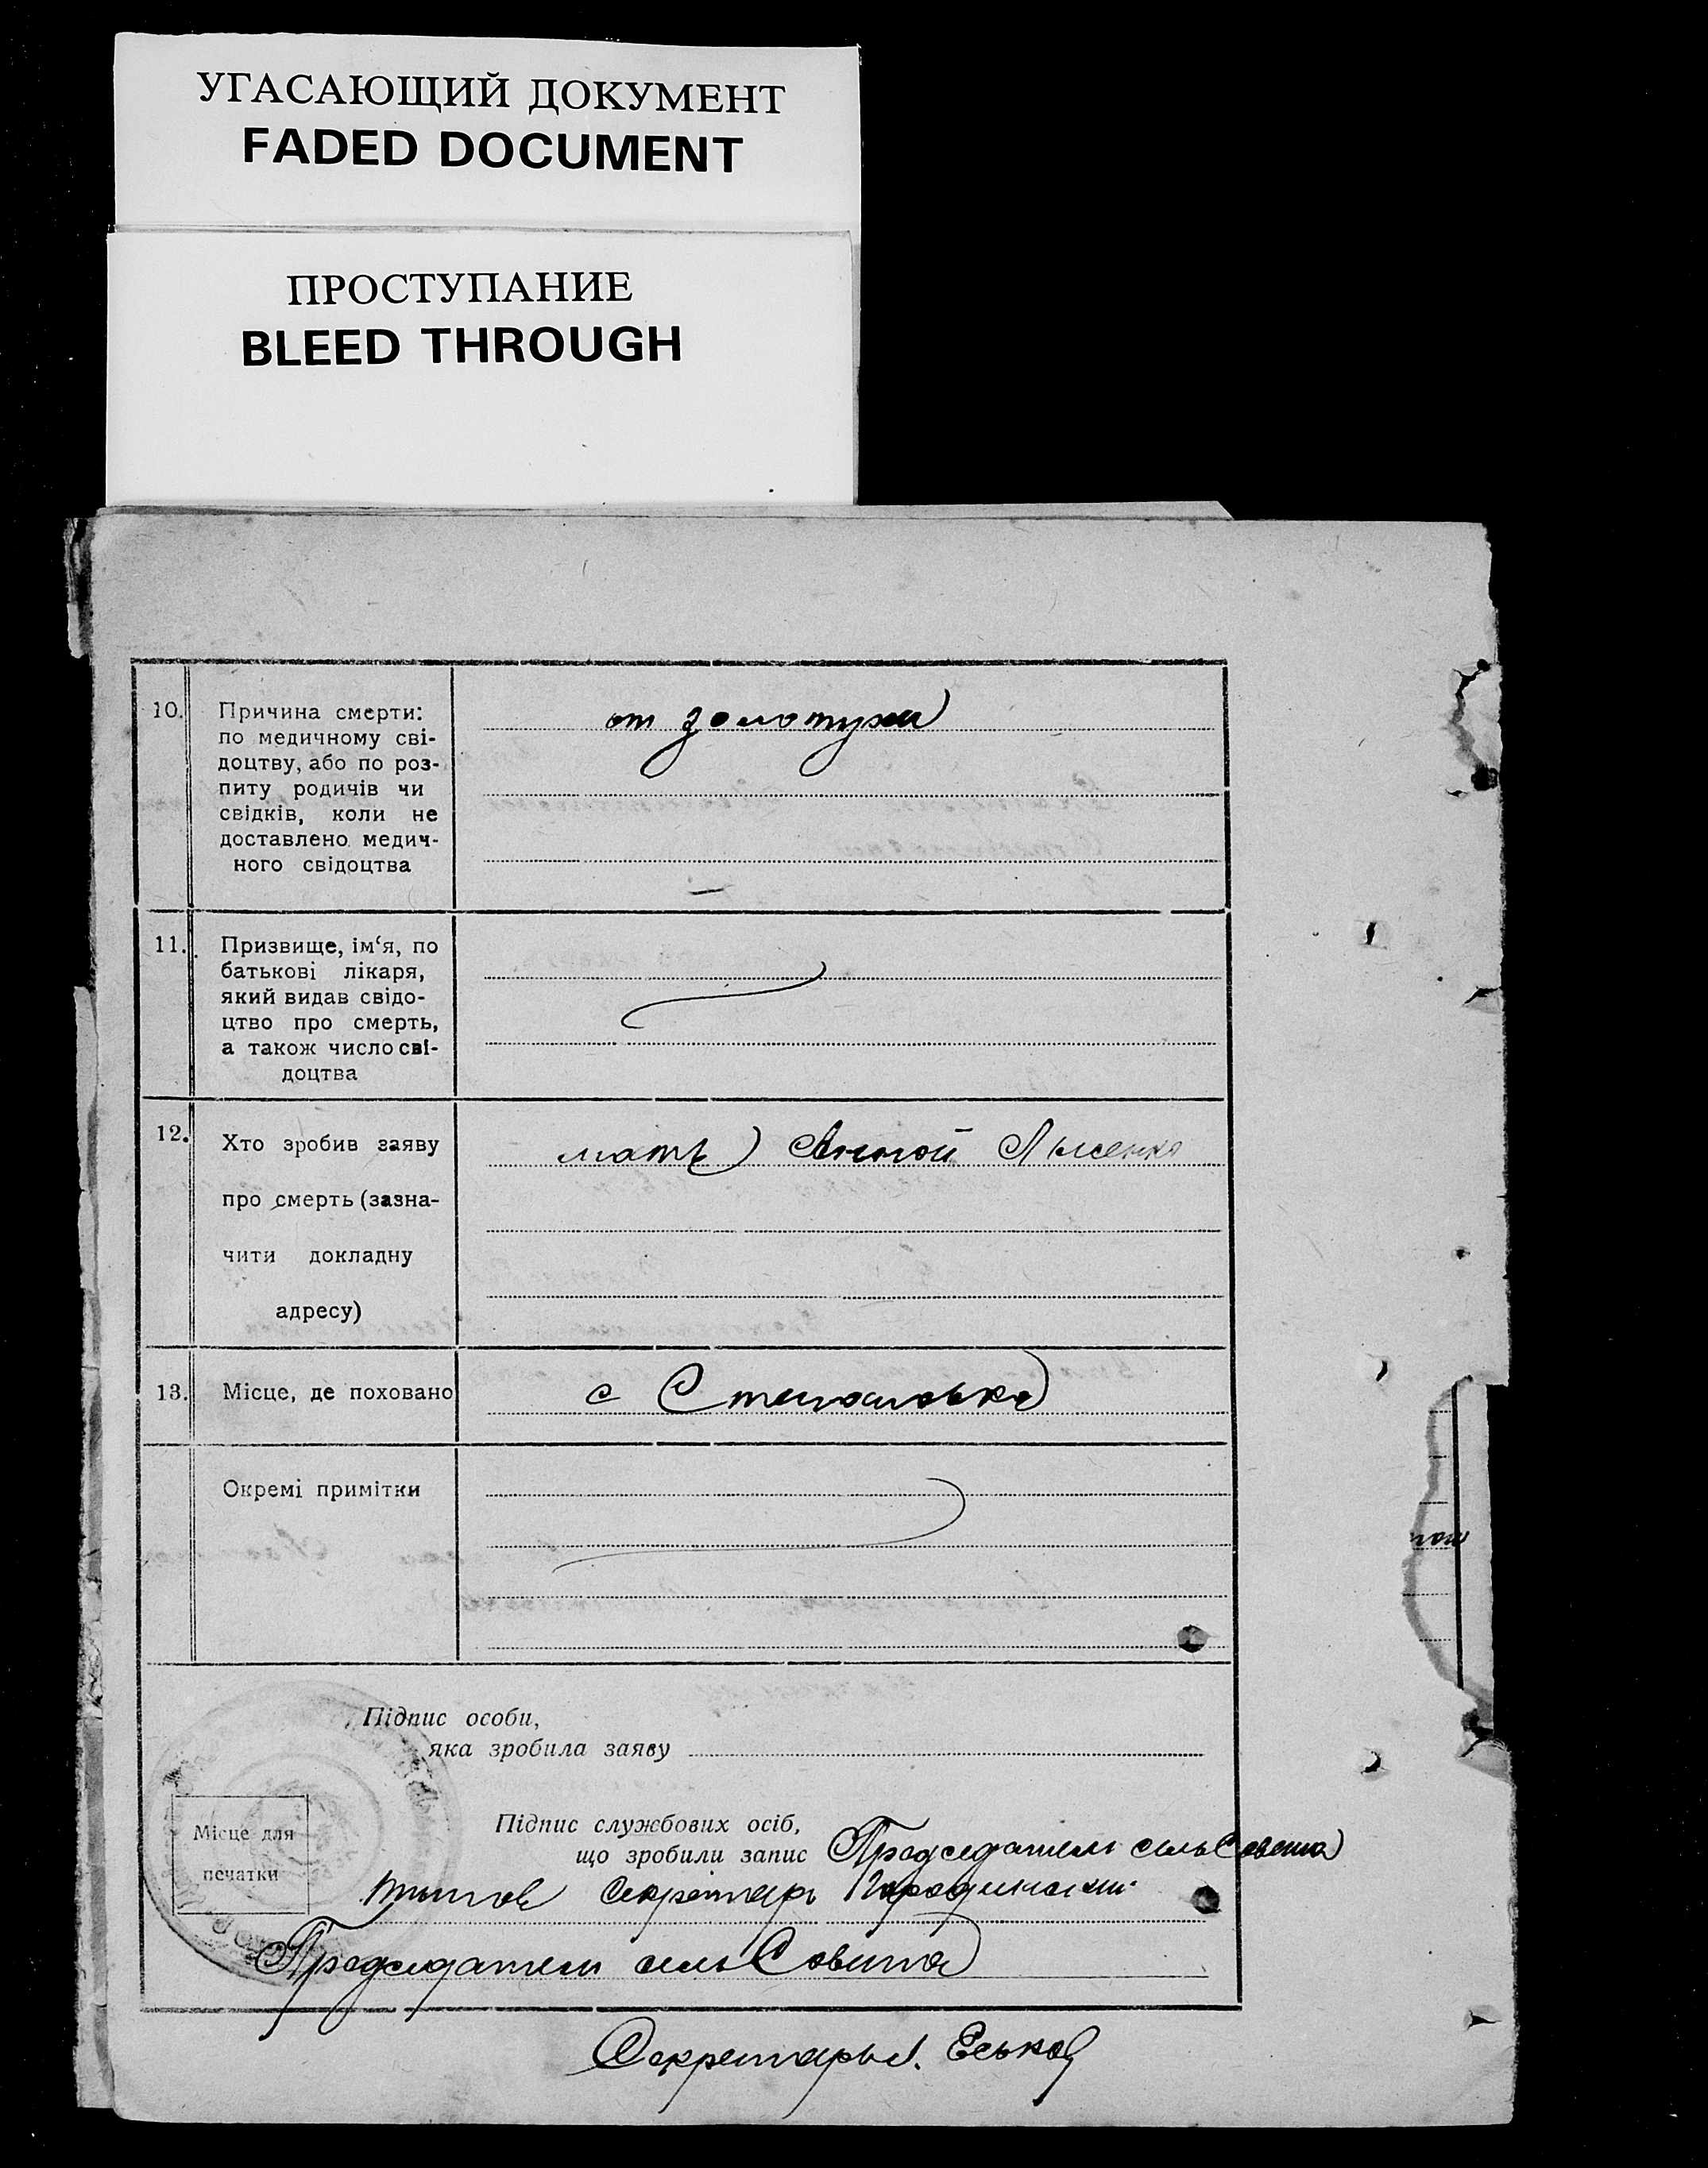 УГАСАЮЩИЙ ДОКУМЕНТ
FADED DOCUMENT
ПРОСТУПАНИЕ
BLEED THROUGH
10.
Причина смерти:
по медичному сві-
доцтву, або по роз-
питу родичів чи
свідків, коли не
доставлено медич-
ного свідоцтва
от золотухи
11.
Призвище, ім‘я, по
батькові лікаря,
який видав свідо-
цтво про смерть,
а також число сві-
доцтва
12.
Хто зробив заяву
про смерть (зазна-
чити докладну
адресу)
мать Анной Лысенко
13.
Місце, де поховано
с Степановка
Окремі примітки
Підпис особи,
яка зробила заяву
Місце для
печатки
Підпис службових осіб,
що зробили запис Председатель сельСовета
Секретарь
Председатель сельСовета
Секретарь Еськов